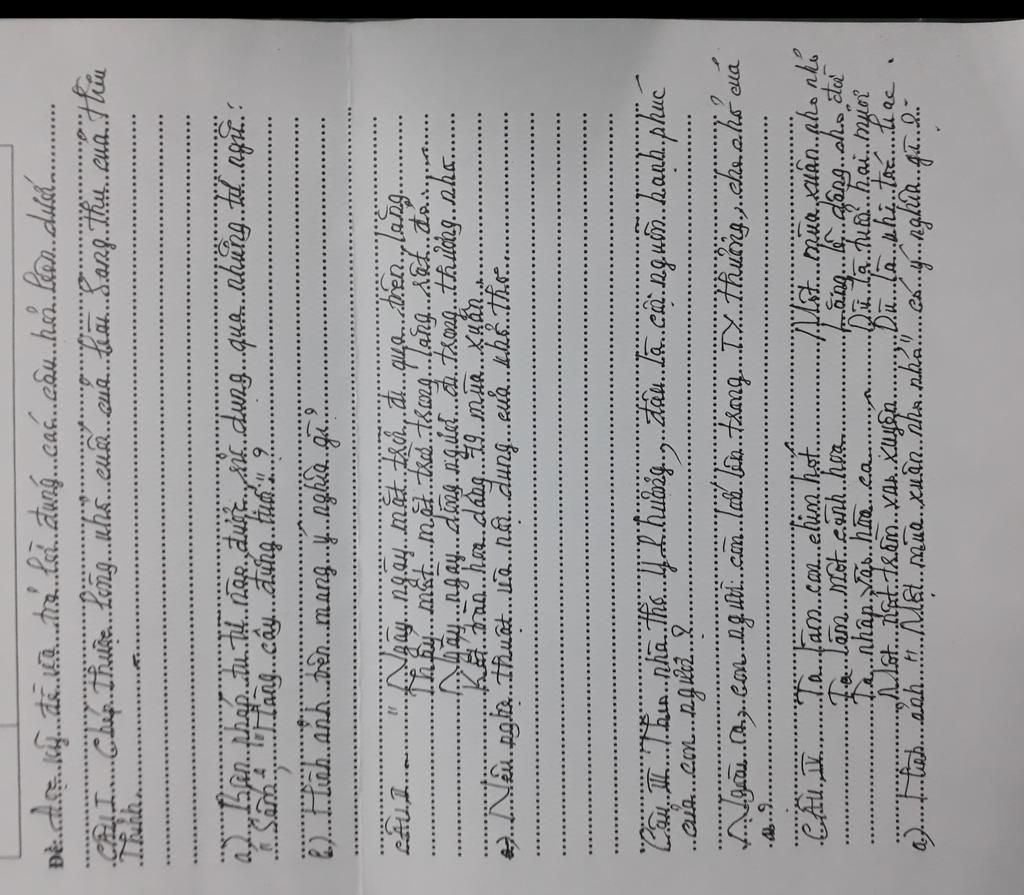 Đề: đọc kỹ đề và trả lời đúng các câu hỏi bên dưới
CÂU I Chép thuộc lòng khổ cuối của bài Sang thu của Hữu
Thỉnh
a) Biện pháp tu từ nào được sử dụng qua những từ ngữ:
"Sấm", "Hàng cây đứng tuổi"?
b) Hình ảnh trên mang ý nghĩa gì?
CÂU II - "Ngày ngày mặt trời đi qua trên lăng
Thấy một mặt trời trong lăng rất đỏ
Ngày ngày dòng người đi trong thương nhớ
Kết tràng hoa dâng 79 mùa xuân
a) Nêu nghệ thuật và nội dung của khổ thơ
Câu III Theo nhà thơ Y Phương, đâu là cội nguồn hạnh phúc
của con người?
Ngoài ra, con người còn lớn lên trong TY thương, che chở của
ai?
CÂU IV Ta làm con chim hót
Ta làm một cành hoa
Ta nhập vào hòa ca
Một nốt trầm xao xuyến
Một mùa xuân nho nhỏ
Lặng lẽ dâng cho đời
Dù là tuổi hai mươi
Dù là khi tóc bạc.
a) Hình ảnh "Một mùa xuân nho nhỏ" có ý nghĩa gì?